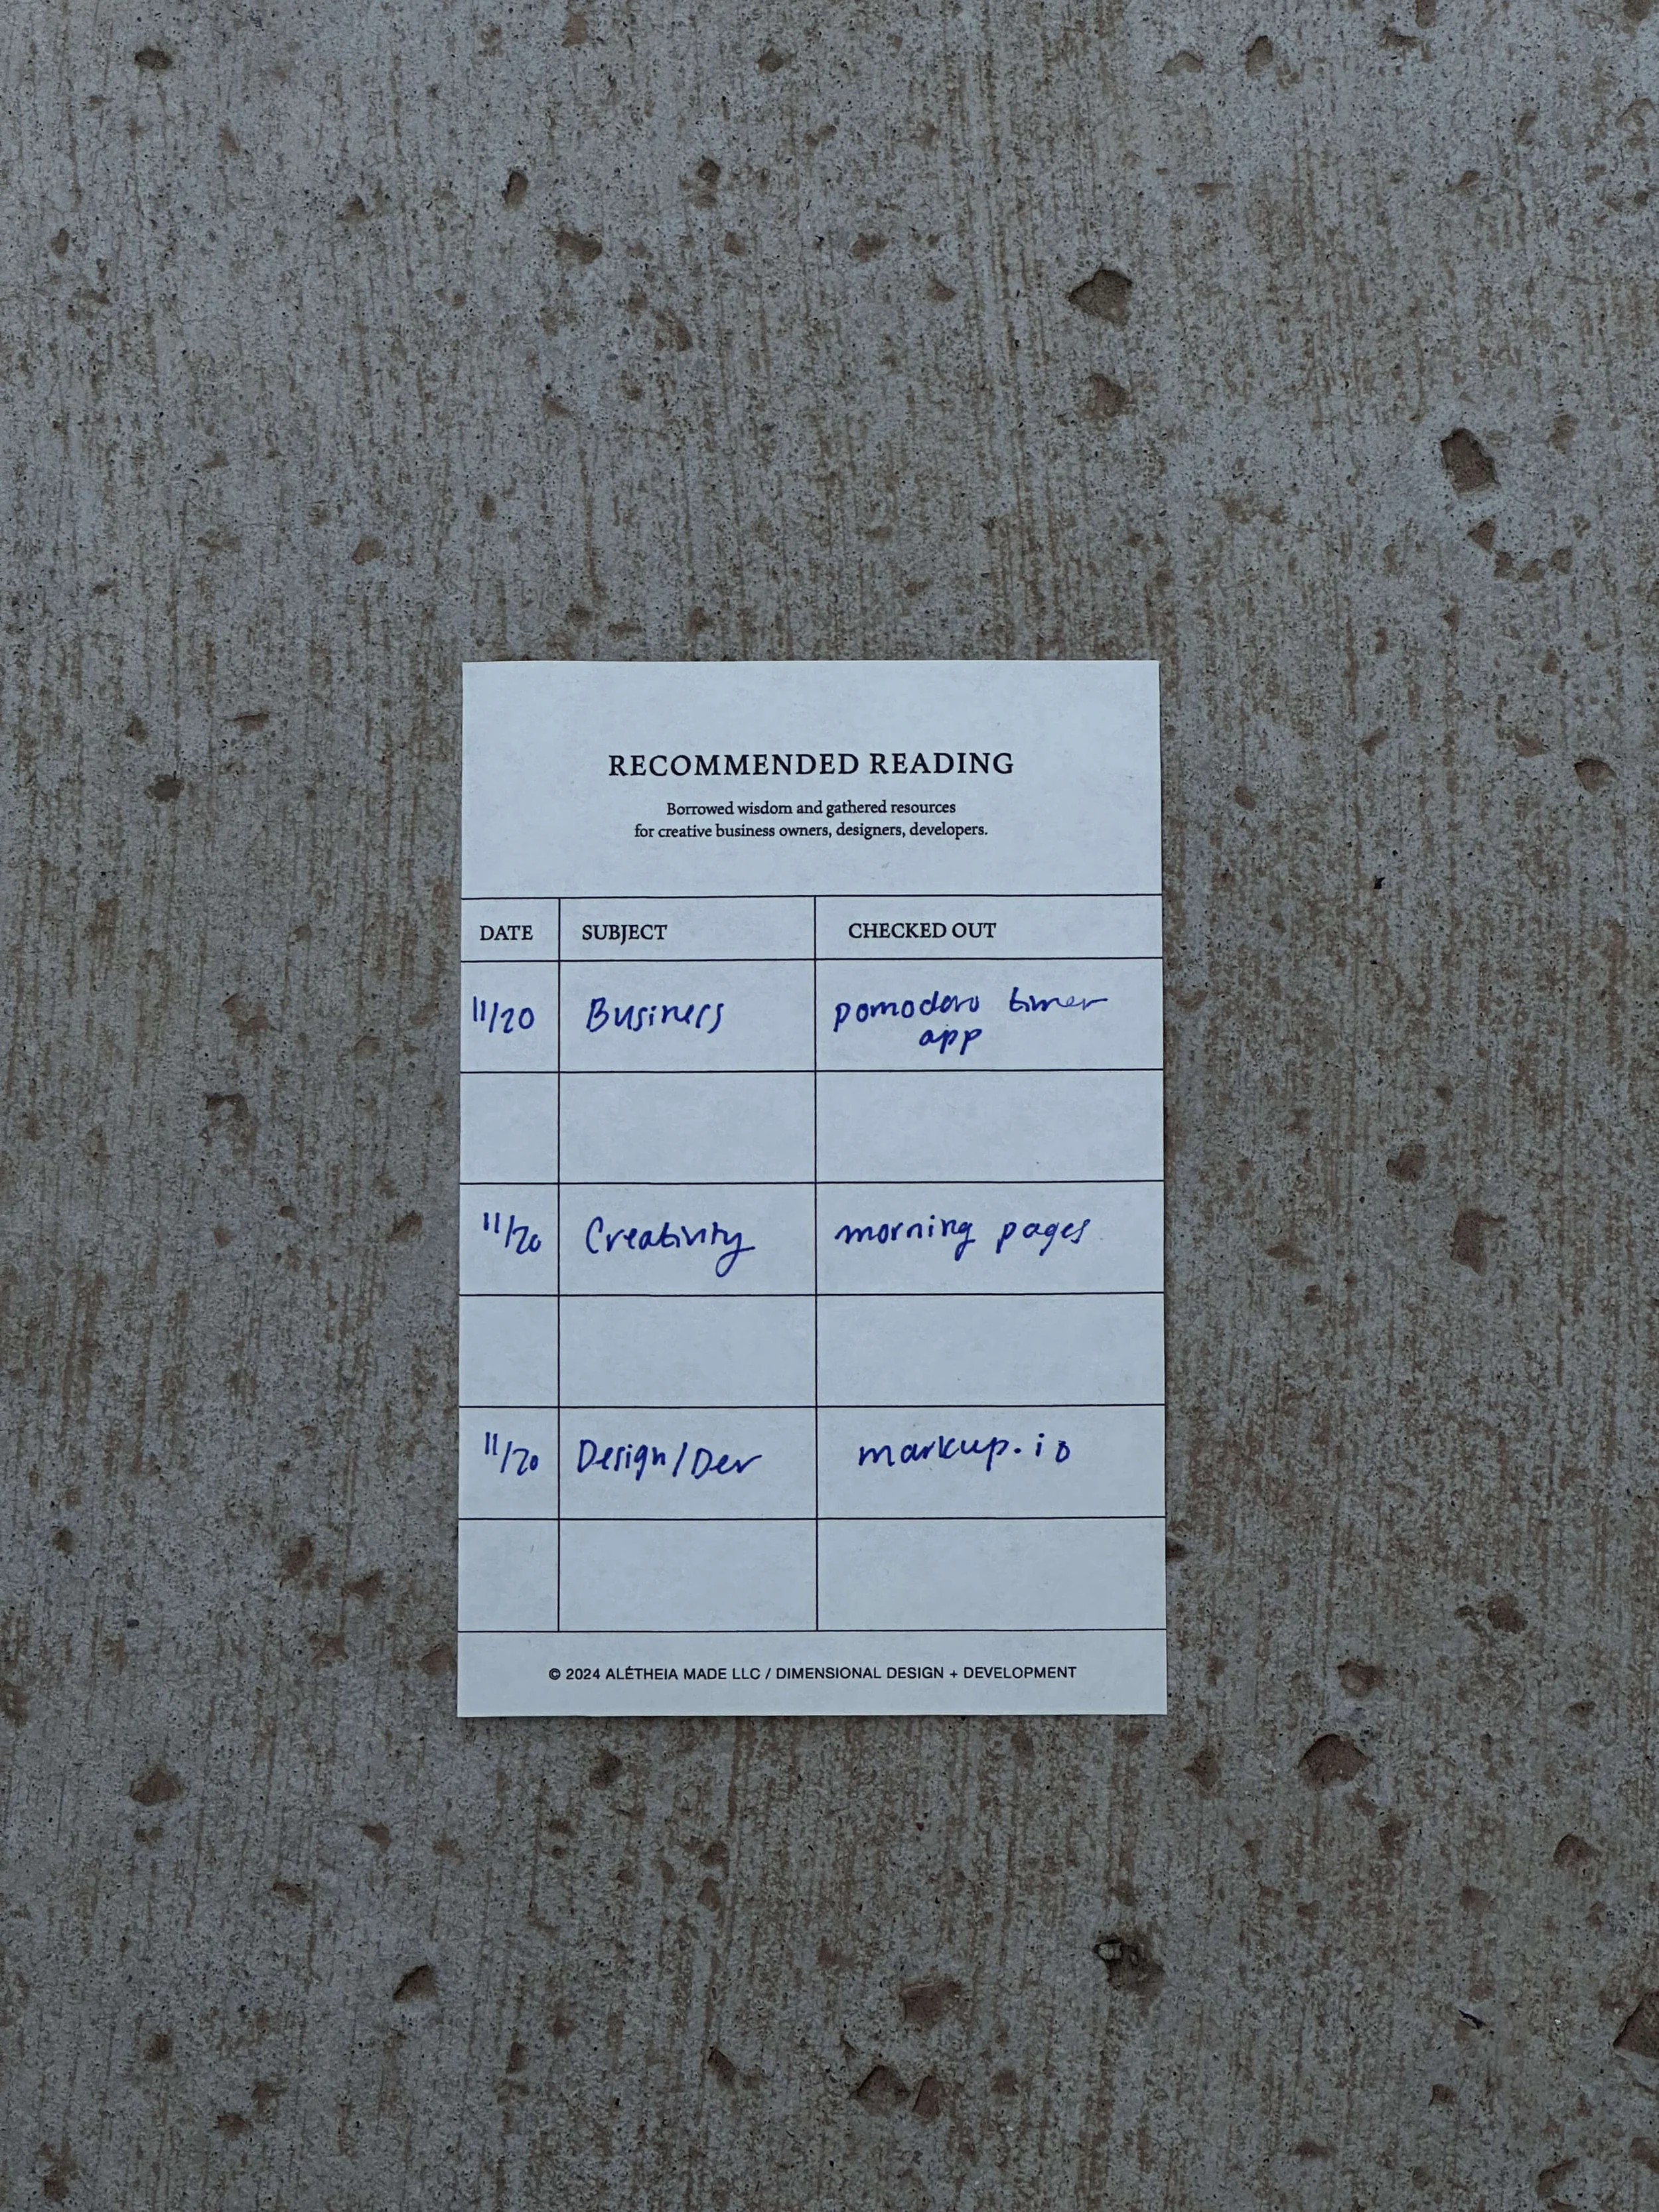 RECOMMENDED READING
Borrowed wisdom and gathered resources
for creative business owners, designers, developers.
DATE SUBJECT CHECKED OUT
11/20 Business pomodoro timer
app
11/20 Creativity morning pages
11/20 Design/Dev markup.io
© 2024 ALÉTHEIA MADE LLC / DIMENSIONAL DESIGN + DEVELOPMENT